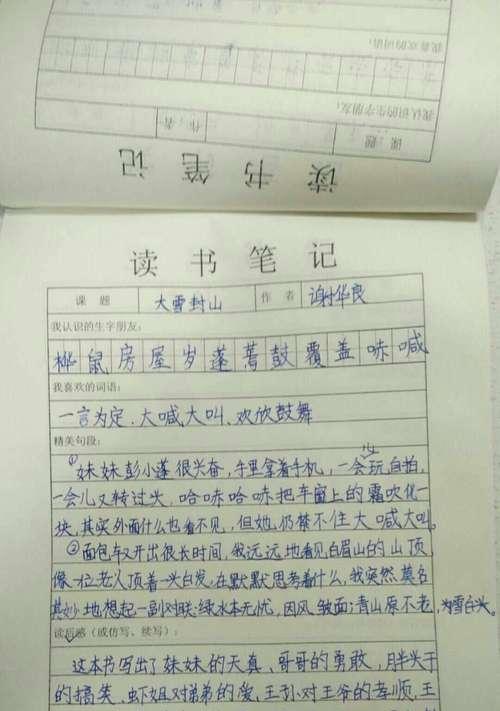 我喜欢的词语:
我认识的生字朋友:
课 题
作 者
读 书 笔 记
读 书 笔 记
课 题 大雪封山 作 者 谢华良
我认识的生字朋友:
桦 鼠 房 屋 岁 蓬 蒿 鼓 覆 盖 哧 喊
我喜欢的词语:
一言为定、大喊大叫、欢欣鼓舞
精美句段:
①妹妹彭小蓬很兴奋,手里拿着手机,一会儿玩自拍,
一会儿又转过头,哈哧哈哧把车窗上的霜吹化一
块,其实外面什么也看不见,但她仍禁不住大喊大叫。
②面包车又开出很长时间,我远远地看见白眉山的山顶
像一位老人顶着一头白发,在默默思考着什么,我突然莫名
其妙地想起一副对联:绿水本无忧,因风皱面;青山原不老,为雪白头。
读后感(或仿写、续写):
这本书写出了妹妹的天真、哥哥的勇敢,胖头于
的搞笑、虾姐对弟弟的爱,王孙对王爷的孝顺,王